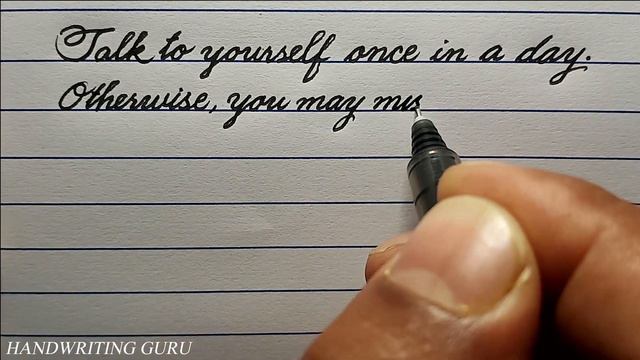 Talk to yourself once in a day.
Otherwise, you may mis
HANDWRITING GURU